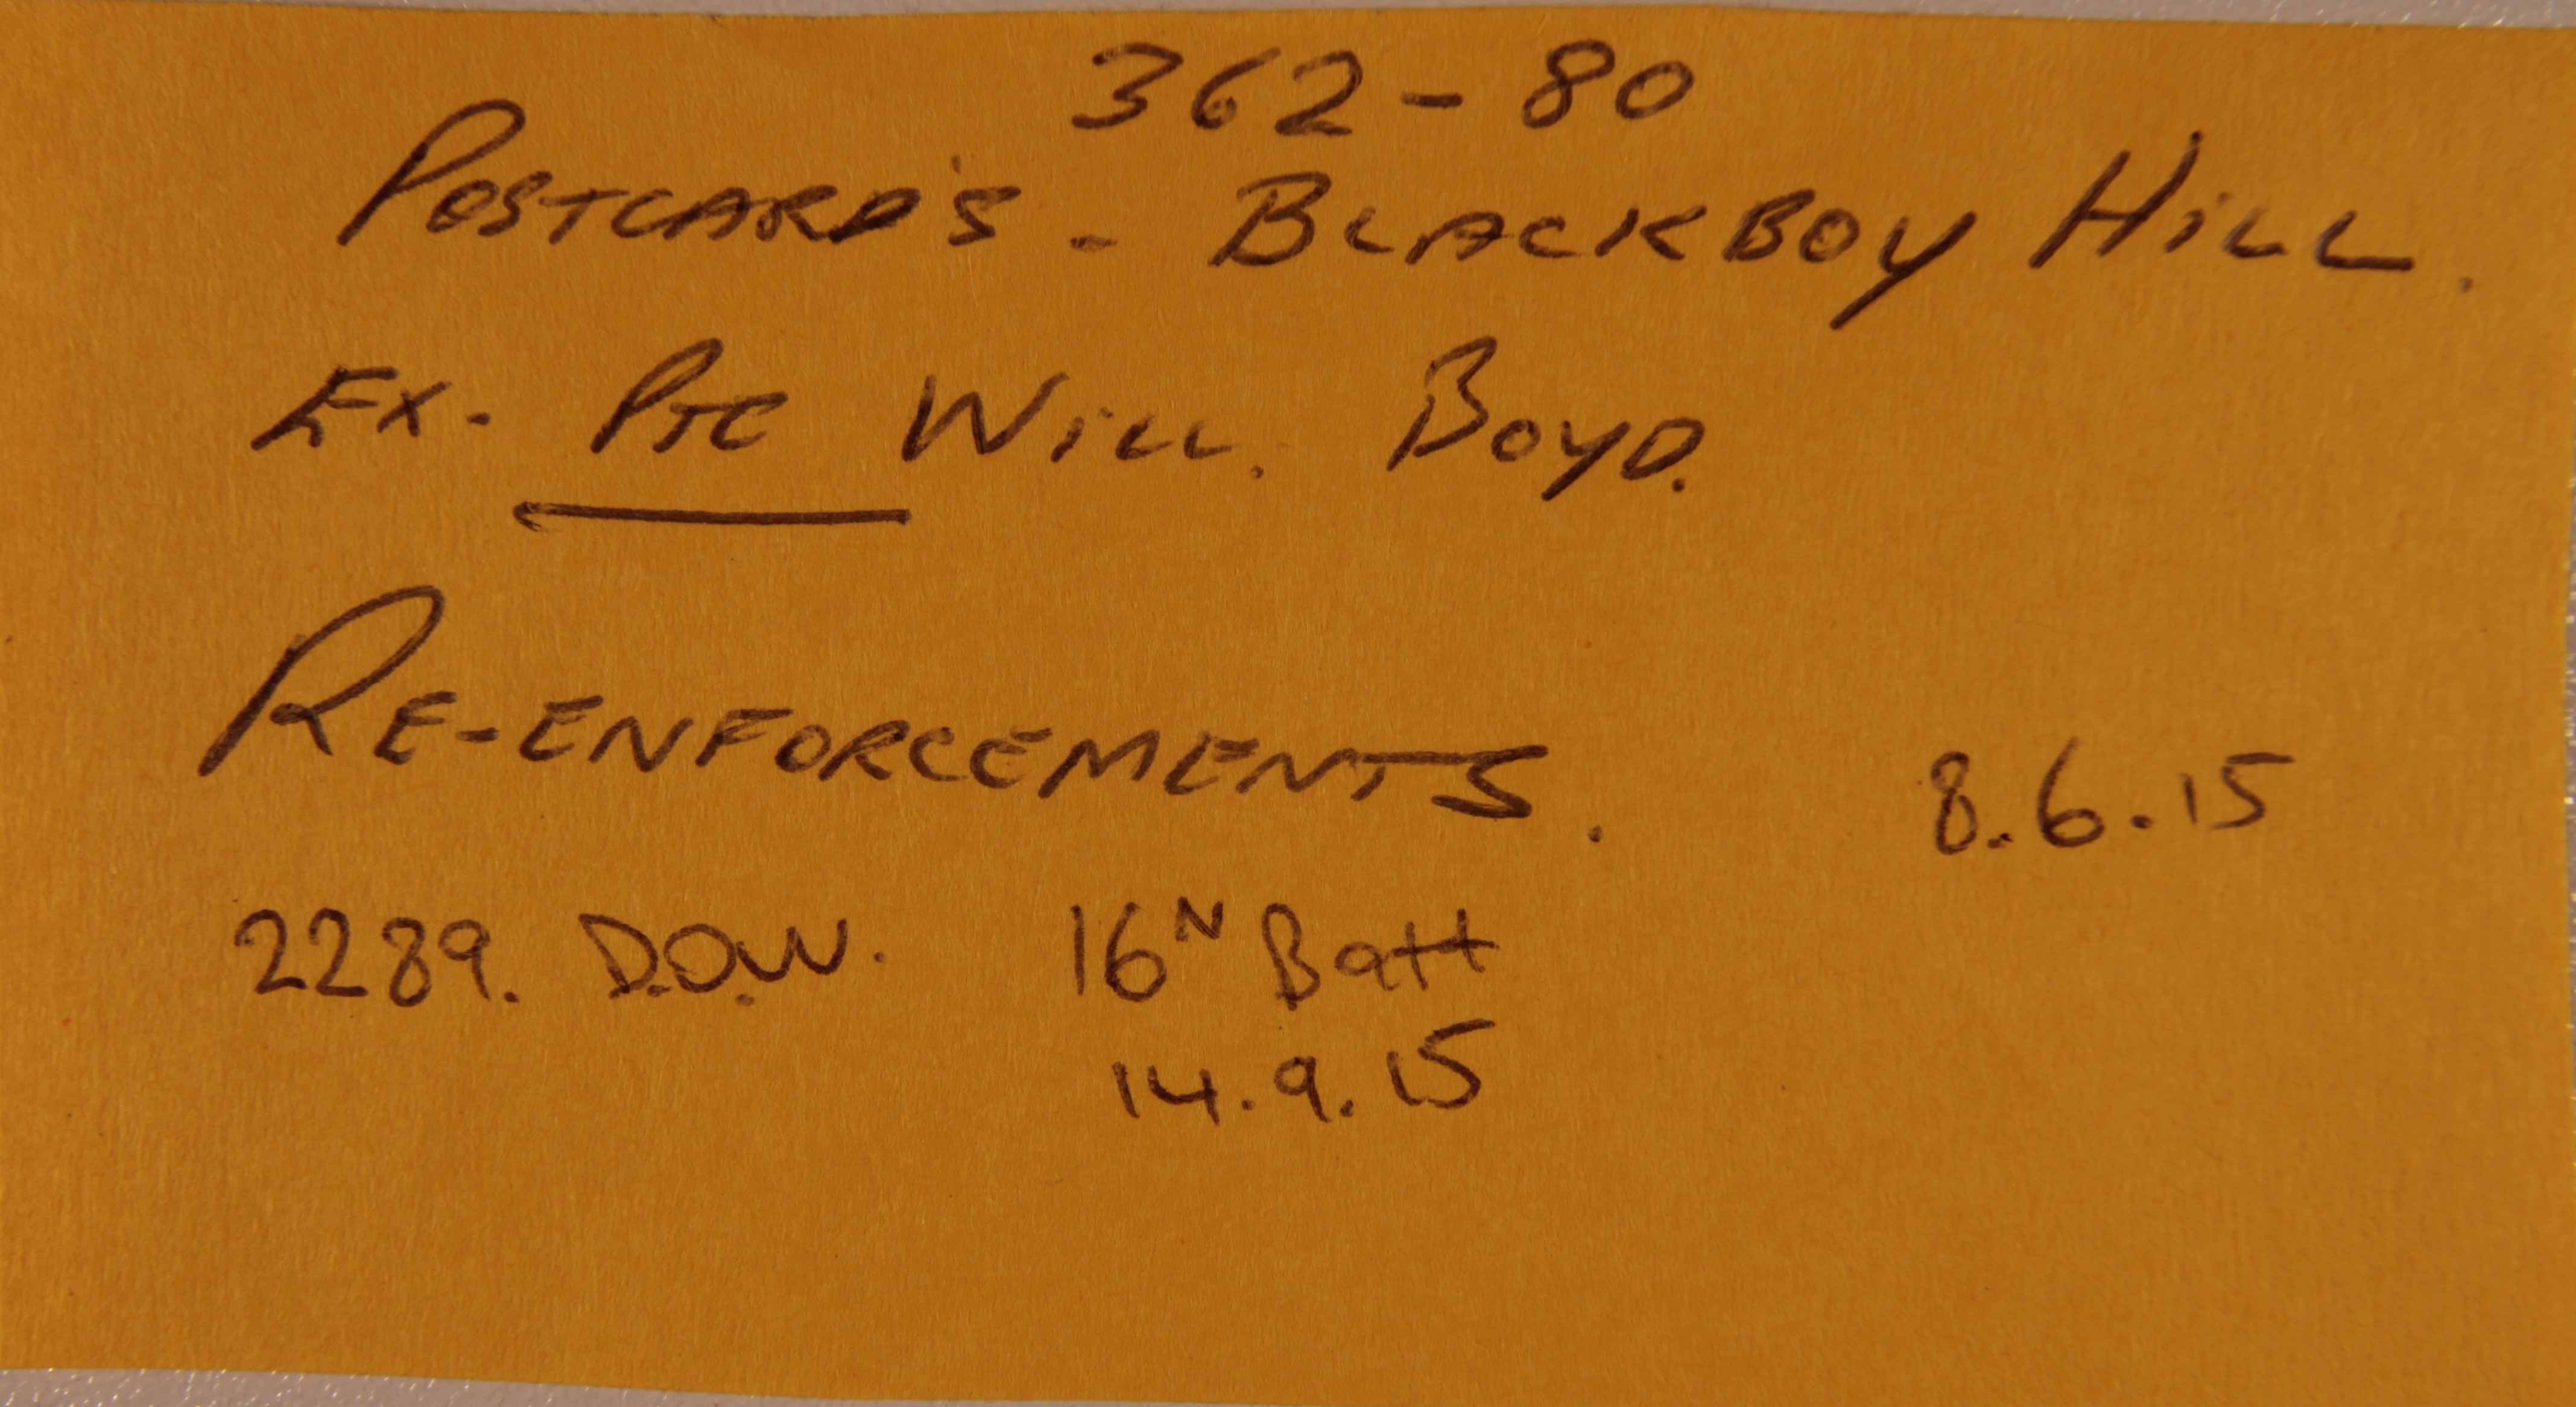 362-80
POSTCARD'S - BLACKBOY HILL.
EX. PTE WILL. BOYD.
RE-ENFORCEMENTS. 8.6.15
2289. D.O.W. 16N Batt
14.9.15